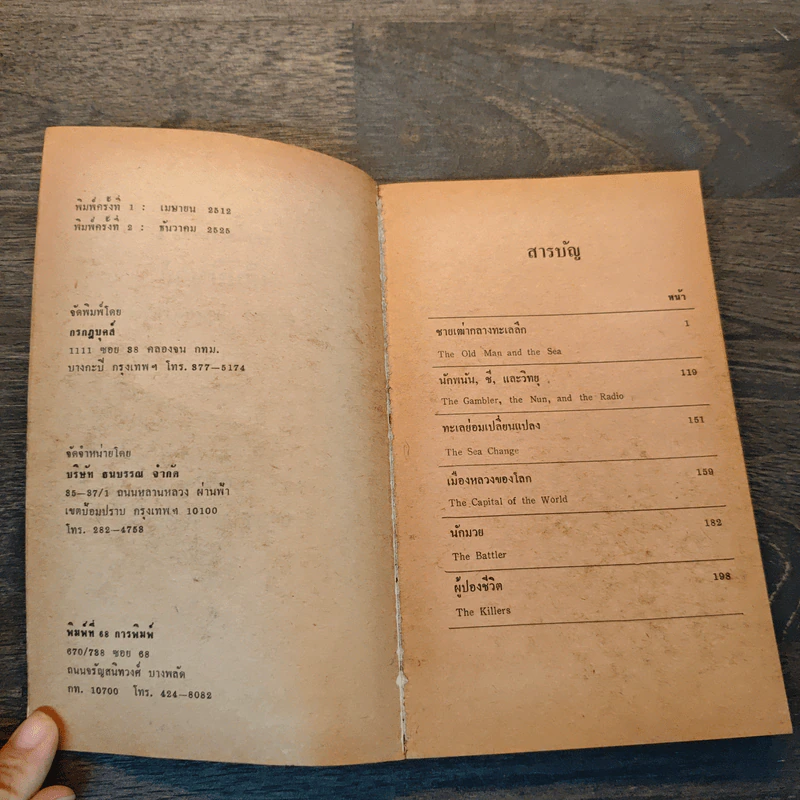 พิมพ์ครั้งที่ 1 : เมษายน 2512
พิมพ์ครั้งที่ 2 : ธันวาคม 2525
จัดพิมพ์โดย
กรกฎบุคส์
1111 ซอย 38 คลองจน กทม.
บางกะปิ กรุงเทพฯ โทร. 377-5174
จัดจำหน่ายโดย
บริษัท ธนบรรณ จำกัด
35-37/1 ถนนหลานหลวง ผ่านฟ้า
เขตป้อมปราบ กรุงเทพฯ 10100
โทร. 282-4753
พิมพ์ที่ 68 การพิมพ์
670/738 ซอย 68
ถนนจรัญสนิทวงศ์ บางพลัด
กท. 10700 โทร. 424-6082
สารบัญ
หน้า
ชายเฒ่ากลางทะเลลึก 1
The Old Man and the Sea
นักพนัน, ชี, และวิทยุ 119
The Gambler, the Nun, and the Radio
ทะเลย่อมเปลี่ยนแปลง 151
The Sea Change
เมืองหลวงของโลก 159
The Capital of the World
นักมวย 182
The Battler
ผู้ปองชีวิต 198
The Killers